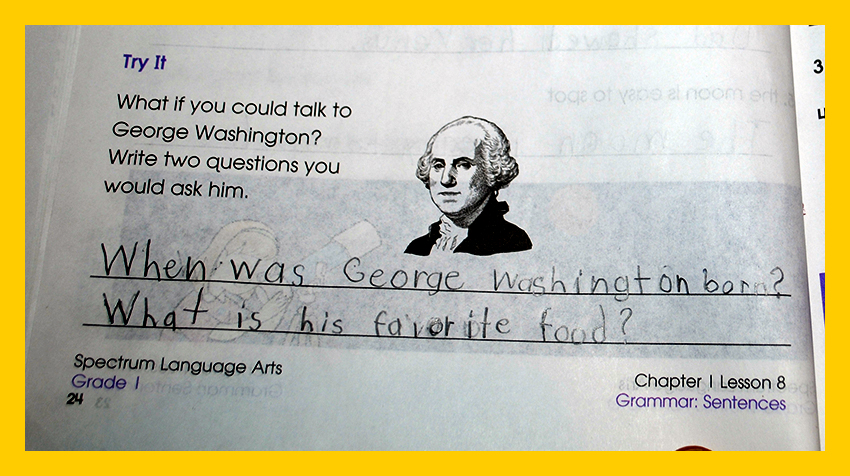 Try It
What if you could talk to
George Washington?
Write two questions you
would ask him.
When was George Washington born?
What is his favorite food?
Spectrum Language Arts
Grade 1
24
Chapter 1 Lesson 8
Grammar: Sentences
3